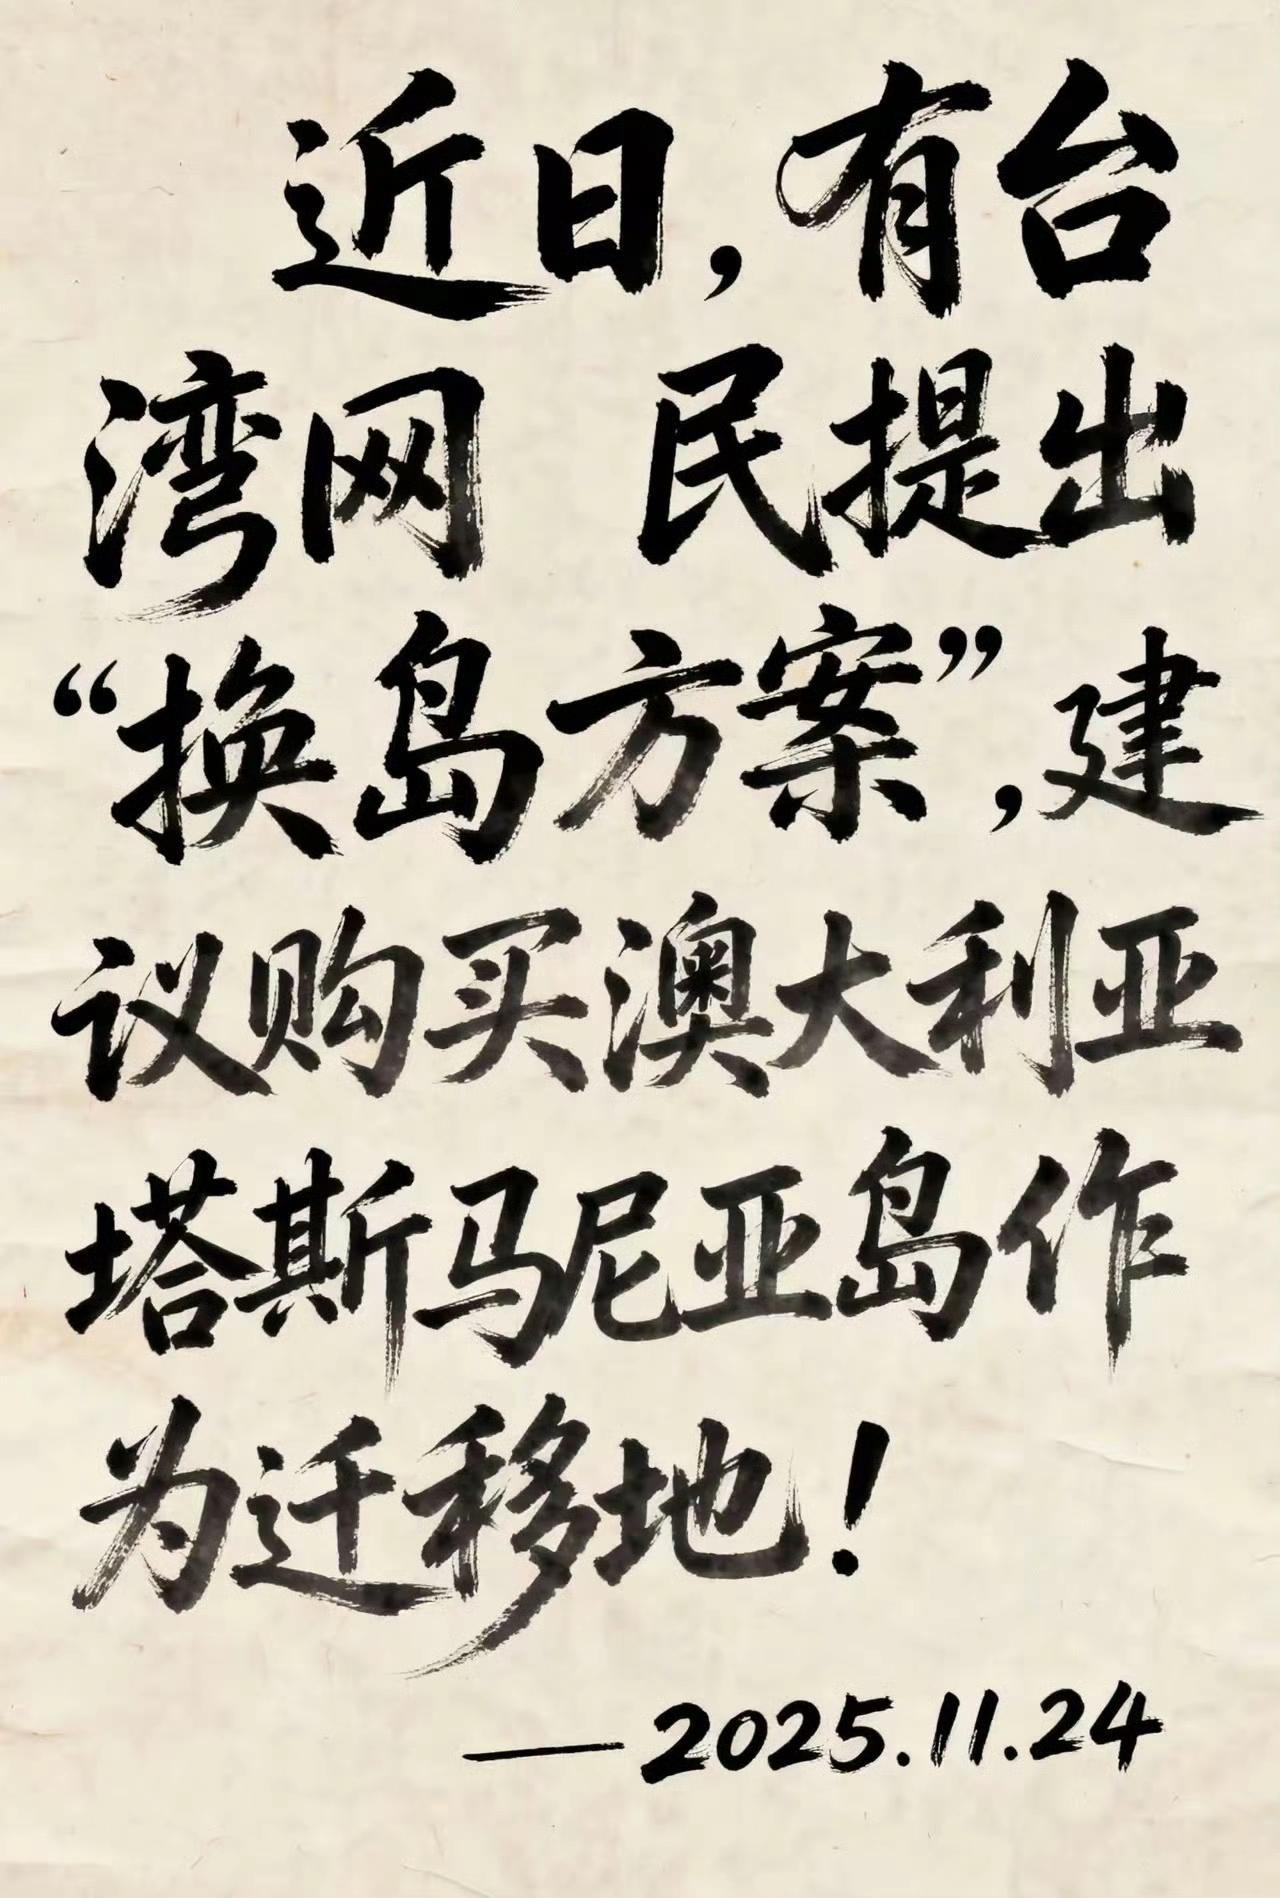 近日,有台
湾网 民提出
“换岛方案”,建
议购买澳大利亚
塔斯马尼亚岛作
为迁移地!
—2025.11.24